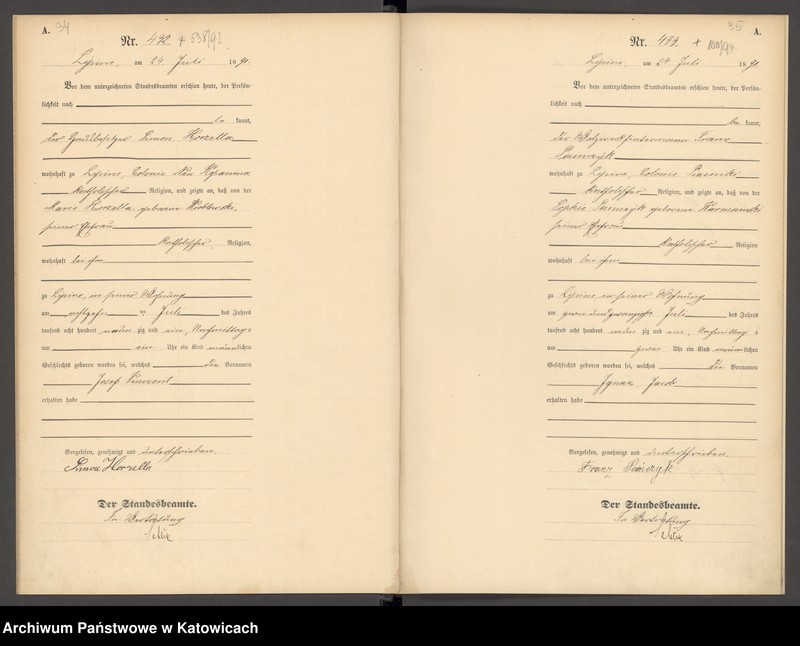 A. 34
Nr. 432 + 538/91
Lipine, am 24. Juli 1891.
Vor dem unterzeichneten Standesbeamten erschien heute, der Persön-
lichkeit nach
be kannt,
der Hausbesitzer Simon Horzella
wohnhaft zu Lipine, Colonie Neu
katholischer Religion, und zeigte an, daß von der
Marie Horzella geborene
seiner Ehefrau
katholischer Religion,
wohnhaft bei ihm
zu Lipine, in seiner Wohnung
am achtzehnten Juli des Jahres
tausend acht hundert neun zig und ein, Nachmittags
um ein Uhr ein Kind männlichen
Geschlechts geboren worden sei, welches die Vornamen
Josef Vincent
erhalten habe
Vorgelesen, genehmigt und unterschrieben.
Simon Horzella
Der Standesbeamte.
In Vertretung
35 A.
Nr. 433. +
Lipine, am 24 Juli 1891.
Vor dem unterzeichneten Standesbeamten erschien heute, der Persön-
lichkeit nach
be kannt,
der Franz
wohnhaft zu Lipine, Colonie
katholischer Religion, und zeigte an, daß von der
Sophie geborene
seiner Ehefrau
katholischer Religion
wohnhaft bei ihm
zu Lipine in seiner Wohnung
am zweiundzwanzigsten Juli des Jahres
tausend acht hundert neun zig und ein, Nachmittags
um zwei Uhr ein Kind männlichen
Geschlechts geboren worden sei, welches die Vornamen
Ignaz, Jacob
erhalten habe
Vorgelesen, genehmigt und unterschrieben.
Franz
Der Standesbeamte.
In Vertretung
Archiwum Państwowe w Katowicach